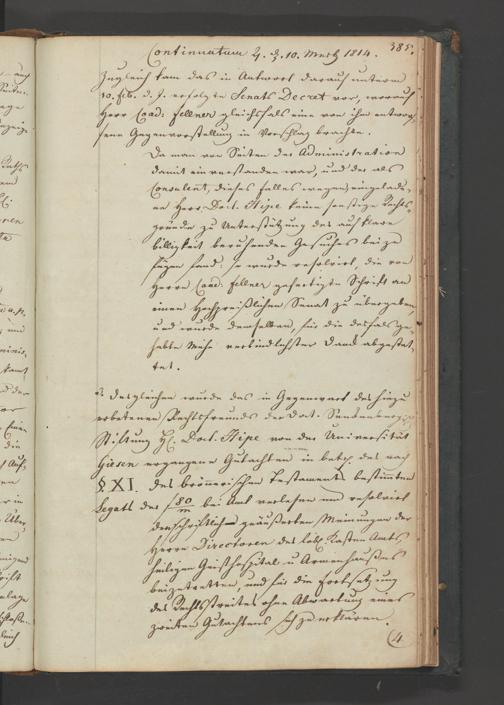 Continuatum d. 10. Mertz 1814.
385.
Zugleich kam das in Antwort darauf unterm
10. Feb. d. J. erfolgte Senats Decret vor, worauf
Herr Cand: Fellner gleichfals eine von ihm entworf-
fene Gegenvorstellung in Vorschlag brachte.
Da man von Seiten der Administration
damit einverstanden war, und der als
Consulent, dieses Falles wegen eingelade-
ne Herr Doct. Hipe keine sonstige Rechts-
gründe zu Unterstützung des auf klare
Billigkeit beruhenden Gesuches beizu
fügen fand; so wurde resolvirt, die von
Herrn Cand. Fellner gefertigte Schrift an
einen Hochpreißlichen Senat zu übergeben,
und wurde demselben, für die desfals ge-
habte Mühe verbindlichster Dank abgestat-
tet.
Desgleichen wurde das in Gegenwart des hinzu
erbetenen Rechtsfreunds der Doct. Senckenbergi
Stiftung H. Doct. Hipe von der Universität
Giesen ergangene Gutachten in betref des nach
§ XI. des brönnerischen Testaments bestimten
Legats der f 80/m bei Amt verlesen und resolvirt
den schriftlich geäußerten Meinungen der
Herren Directoren des löbl. Kasten Amts
heiligen Geisthospital u Armenhauses
beizutretten, und für die Fortsetzung
des Rechtsstreites ohne Abwartung eines
zweiten Gutachtens sich zu erklären.